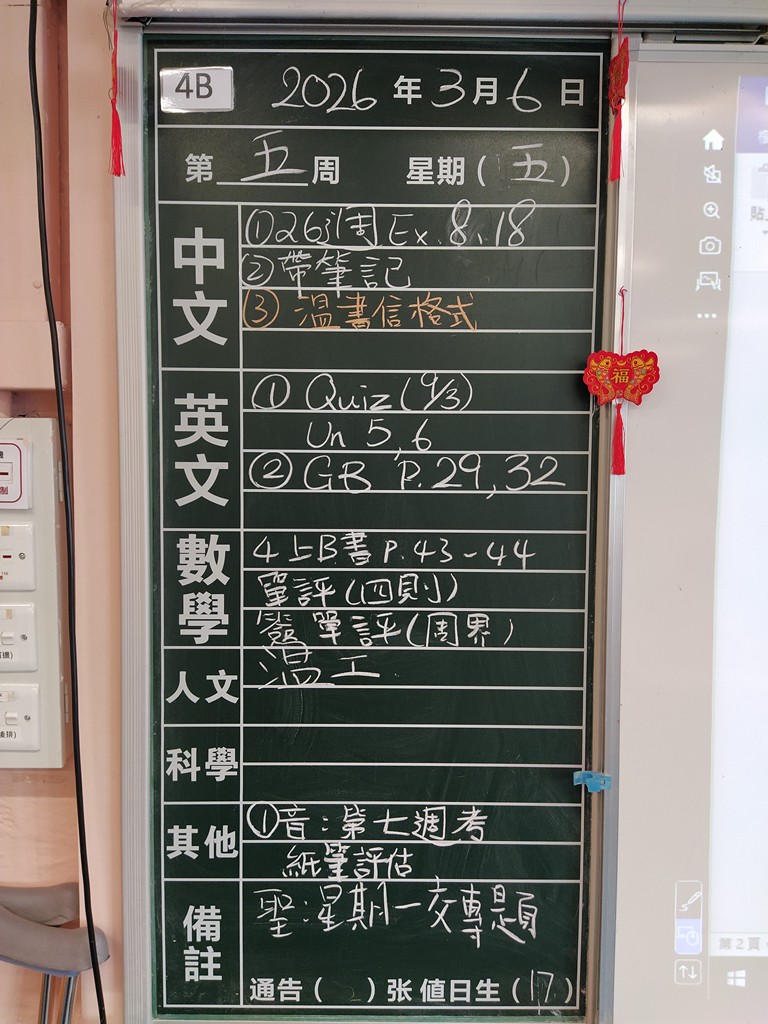 4B
2026年3月6日
第五周 星期(五)
中文
①26週Ex.8,18
②帶筆記
③溫書信格式
英文
①Quiz(9/3)
Un 5,6
②GB P.29,32
數學
4上B書P.43-44
單評(四則)
簽單評(周界)
人文
溫工
科學
其他
①音:第七週考
紙筆評估
備註
聖:星期一交專題
通告( )张 值日生(17)
福
貼
第2頁
制